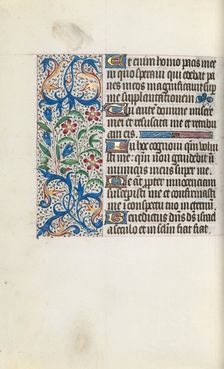 Et enim homo pacis mee
in quo speravi qui edebat pa
nes meos magnificavit sup
me supplantationem
Tu autem domine miserere
mei et resuscita me et retribu
am eis
In hoc cognovi qm volui
sti me: qm non gaudebit i
nimicus meus super me
Me aut ppter innocenciam
suscepisti me et confirmasti
me i conspectu tuo in eternu
Benedictus dns ds israel
a seculo et in seclm fiat fiat